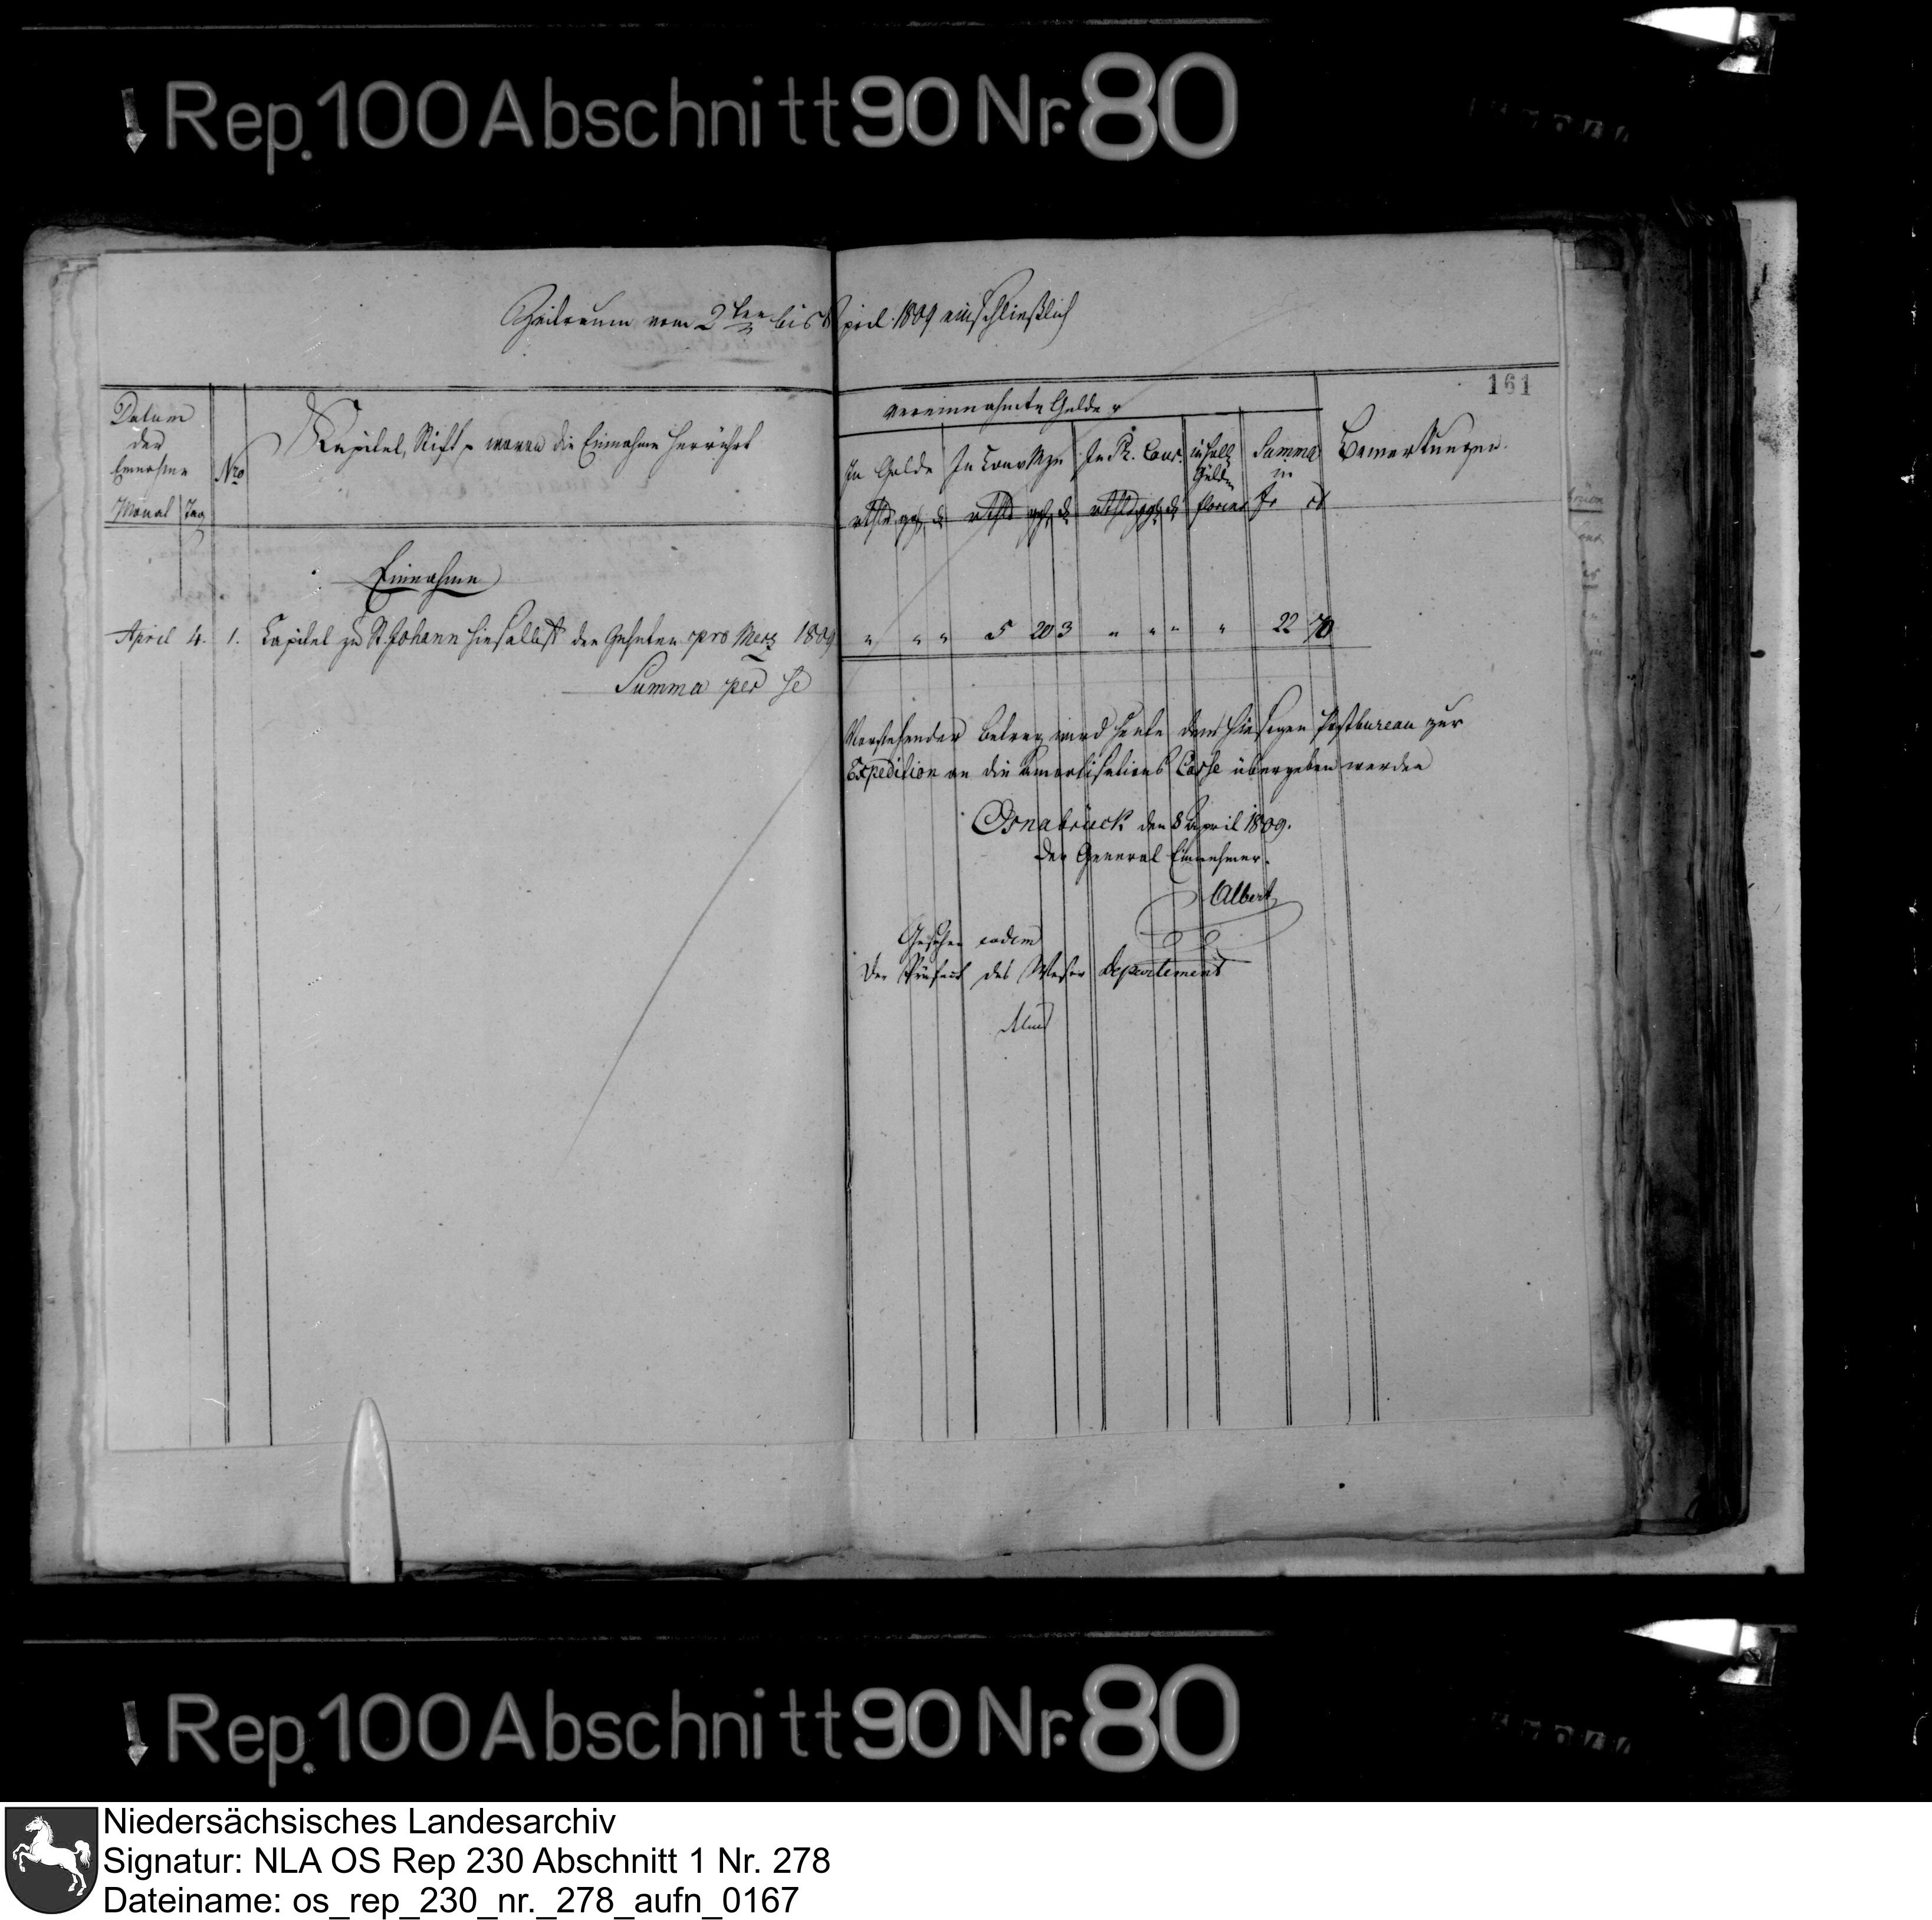 Rep. 100 Abschnitt 90 Nr. 80
Zeitraum vom 2ten bis April 1809 einschließlich
161
Datum der Einnahme
Monat Tag
Nro
Kapitel, Stift, wovon die Einnahme herrührt
vereinnahmte Gelder
In Golde
In Conv Mze
In Pr. Cour.
in holl. Gulden
Summa in
Bemerkungen
rthlr ggr d rthlr ggr d rthlr ggr d florins fr ct
Einnahme
April 4. 1. Capitel zu St. Johann hieselbst den Zehnten pro Merz 1809 " " " 5 20 3 " " " " 22 70
Summa per se
Vorstehender Betrag wird heute dem hiesigen Postbureau zur
Expedition an die Amortisations Casse übergeben werden
Osnabrück den 8 April 1809.
Der General Einnehmer.
Albert
Gesehen eodem
Der Präfect des Weser Departements
Rep. 100 Abschnitt 90 Nr. 80
Niedersächsisches Landesarchiv
Signatur: NLA OS Rep 230 Abschnitt 1 Nr. 278
Dateiname: os_rep_230_nr._278_aufn_0167